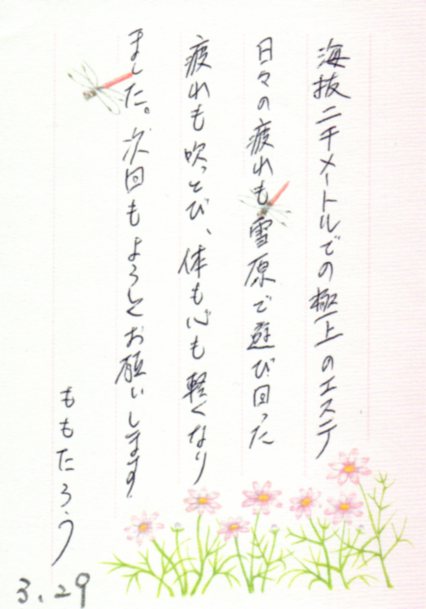 海抜二千メートルでの極上のエステ
日々の疲れも雪原で遊び回った
疲れも吹っとび、体も心も軽くなり
ました。次回もよろしくお願いします
ももたろう
3.29